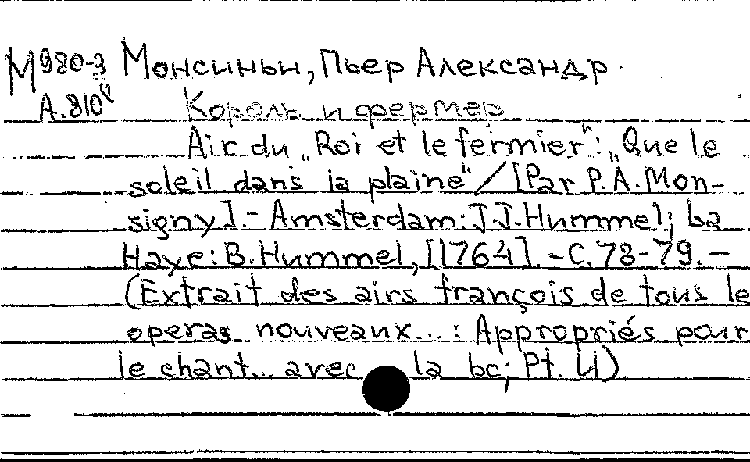 М980-3 Монсиньи, Пьер Александр.
А.810 Король и фермер
Air du „Roi et le fermier": „Que le
soleil dans la plaine" / [Par P.A. Mon-
signy]. - Amsterdam: J.J. Hummel; La
Haye: B. Hummel, [1764]. - C. 78-79. -
(Extrait des airs françois de tous le
operas nouveaux...: Appropriés pour
le chant... avec la bc; Pt. 4)